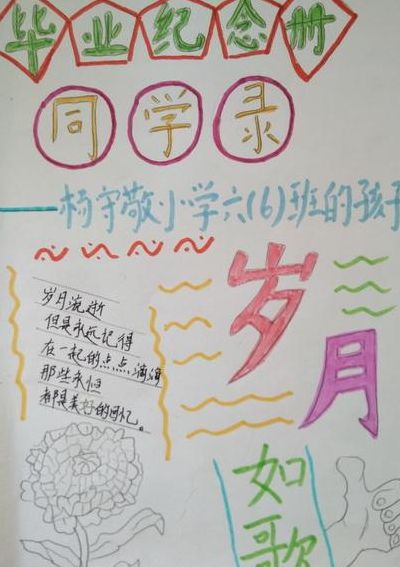 毕业纪念册
同学录
——杨守敬小学六(6)班的孩子
岁月流逝
但是永远记得
在一起的点点滴滴
那些永恒
都是美好的回忆。
岁月
如歌